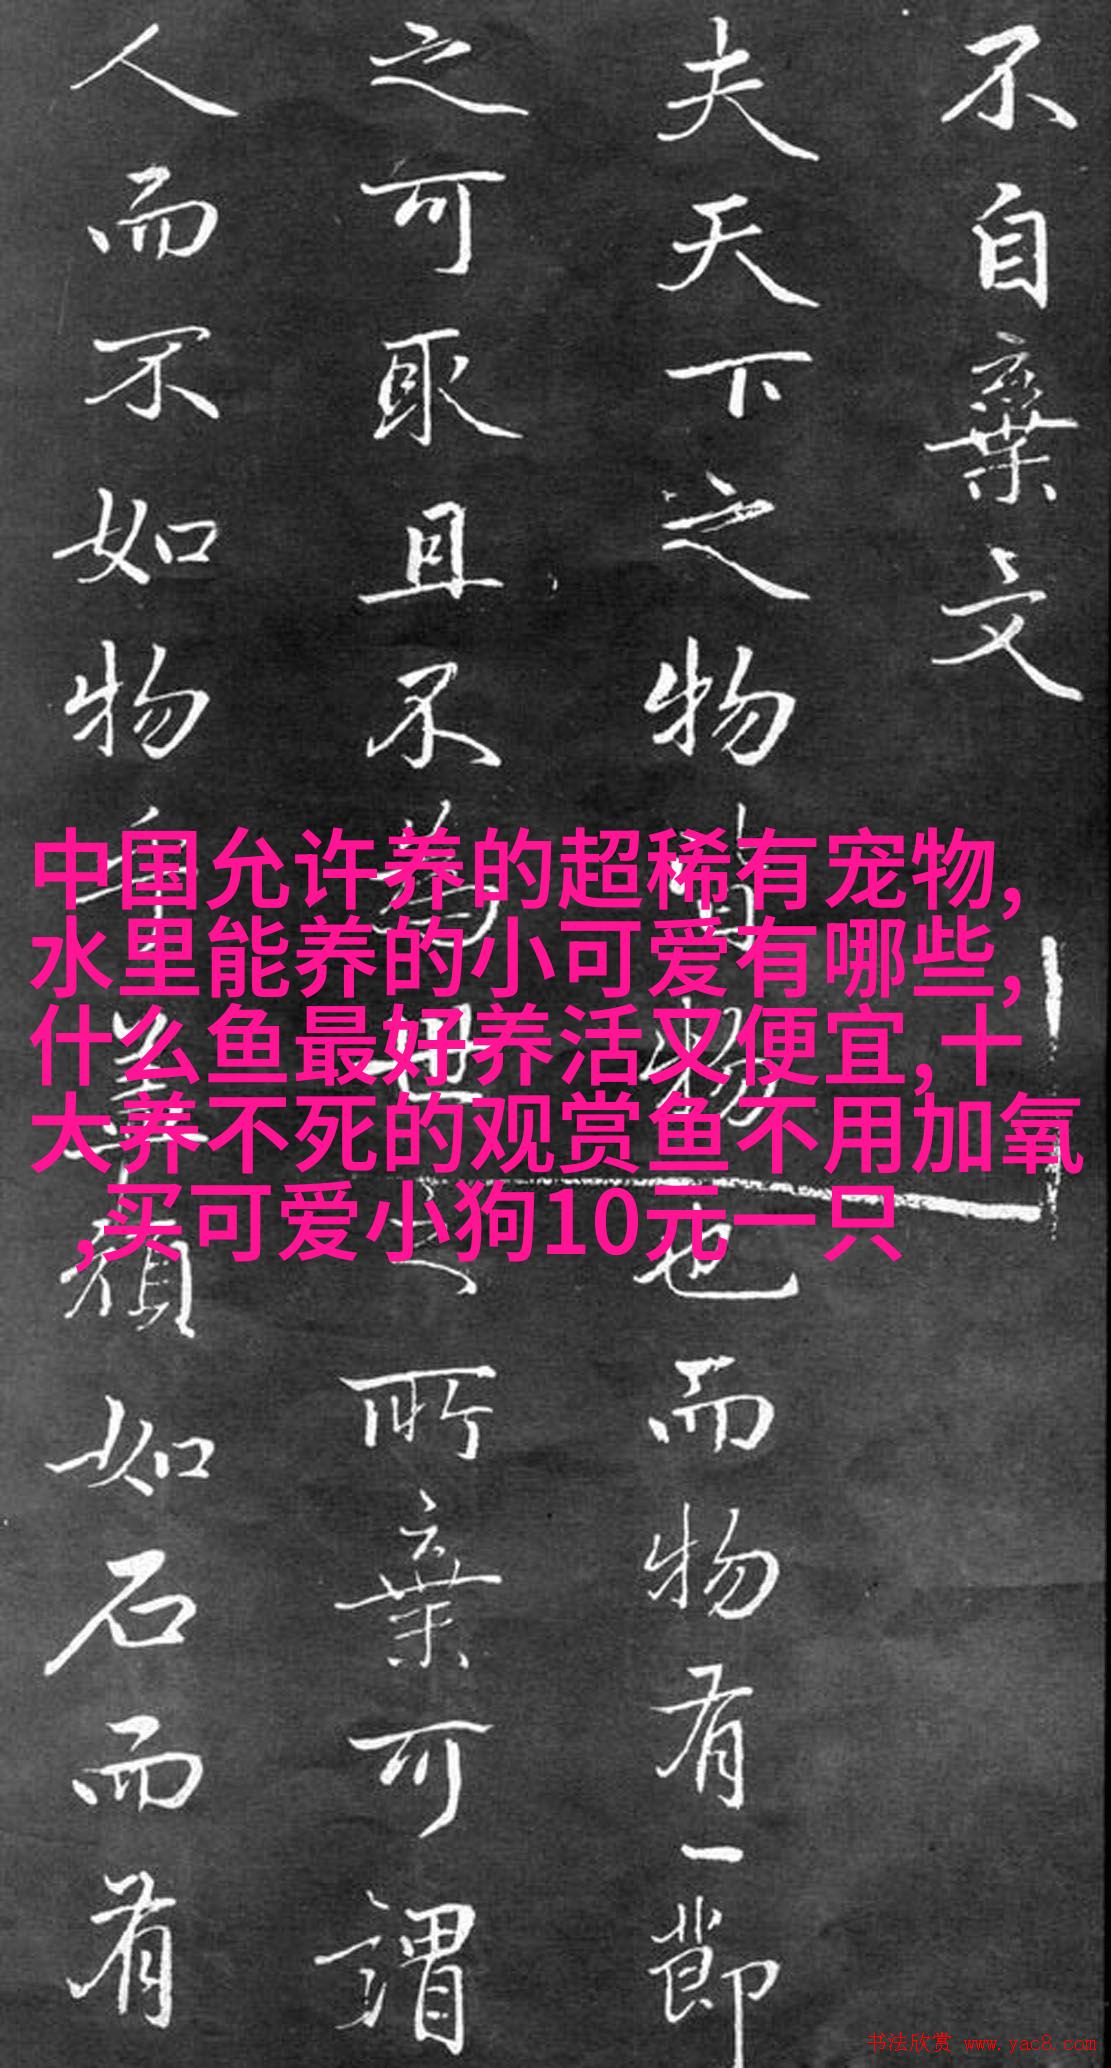 不自棄文
夫天下之物皆物也而物有一節
之可取且不為世之所棄可謂
人而不如物乎蓋頑如石而有
中国允许养的超稀有宠物,
水里能养的小可爱有哪些,
什么鱼最好养活又便宜,十
大养不死的观赏鱼不用加氧
,买可爱小狗10元一只
书法欣赏 www.yac8.com